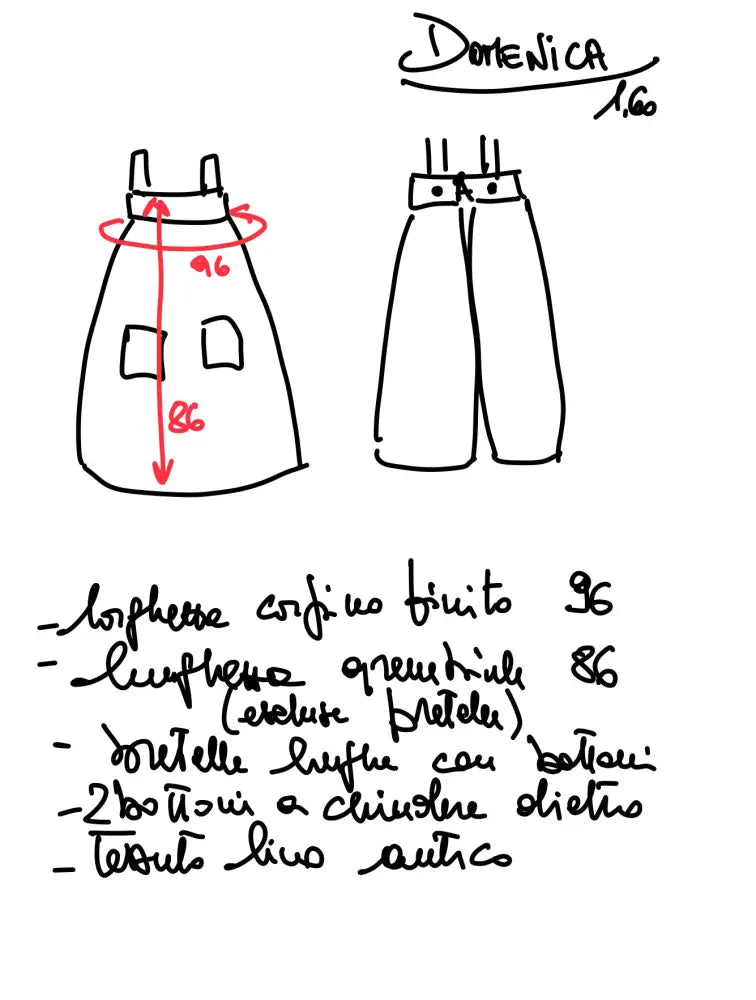 DOMENICA
1,60
96
86
- larghezza corpino finito 96
- lunghezza grembiule 86
(escluse bretelle)
- bretelle lunghe con bottoni
- 2 bottoni a chiudere dietro
- Tessuto lino antico